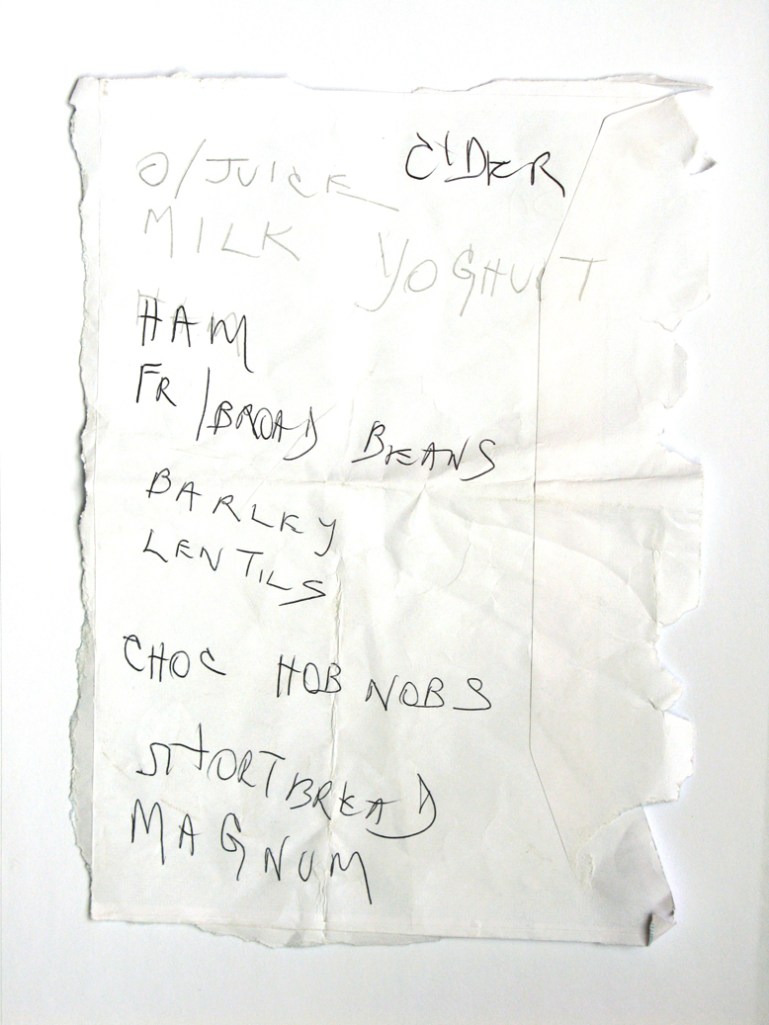 O/JUICE CIDER
MILK YOGHURT
HAM
FR/BROAD BEANS
BARLEY
LENTILS
CHOC HOB NOBS
SHORTBREAD
MAGNUM